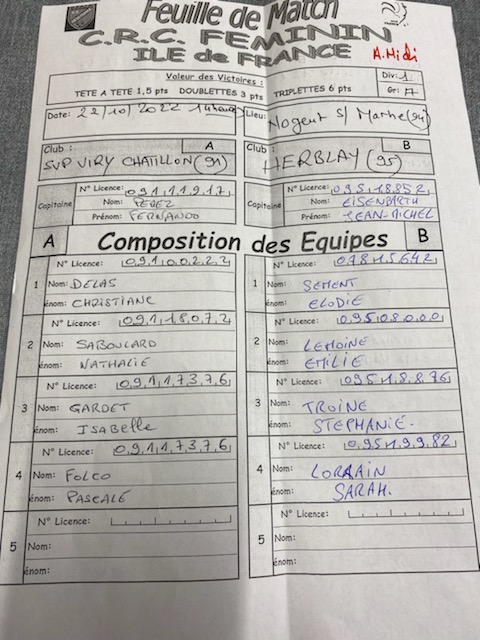 Feuille de Match
C.R.C. FEMININ
ILE de FRANCE
A. Midi
Valeur des Victoires :
TETE A TETE 1,5 pts DOUBLETTES 3 pts TRIPLETTES 6 pts
Div: 1
Gr: A
Date: 22/10/2022 14heures
Lieu: Nogent s/ Marne (94)
Club : A
SVP VIRY CHATILLON (91)
Club : B
HERBLAY (95)
Capitaine
N° Licence: 09111917
Nom: PEREZ
Prénom: FERNANDO
Capitaine
N° Licence: 09518852
Nom: EISENBARTH
Prénom: JEAN-MICHEL
A Composition des Equipes B
N° Licence: 09100222
1 Nom: DELAS
énom: CHRISTIANE
N° Licence: 07815642
1 Nom: SEMENT
énom: ELODIE
N° Licence: 09118072
2 Nom: SABOULARD
énom: NATHALIE
N° Licence: 09508000
2 Nom: LEMOINE
énom: EMILIE
N° Licence: 09117376
3 Nom: GARDET
énom: ISABELLE
N° Licence: 09518876
3 Nom: TROINE
énom: STEPHANIE.
N° Licence: 09117376
4 Nom: FOLCO
énom: PASCALE
N° Licence: 09519982
4 Nom: LORRAIN
énom: SARAH.
N° Licence:
5 Nom:
énom:
N° Licence:
5 Nom:
énom: